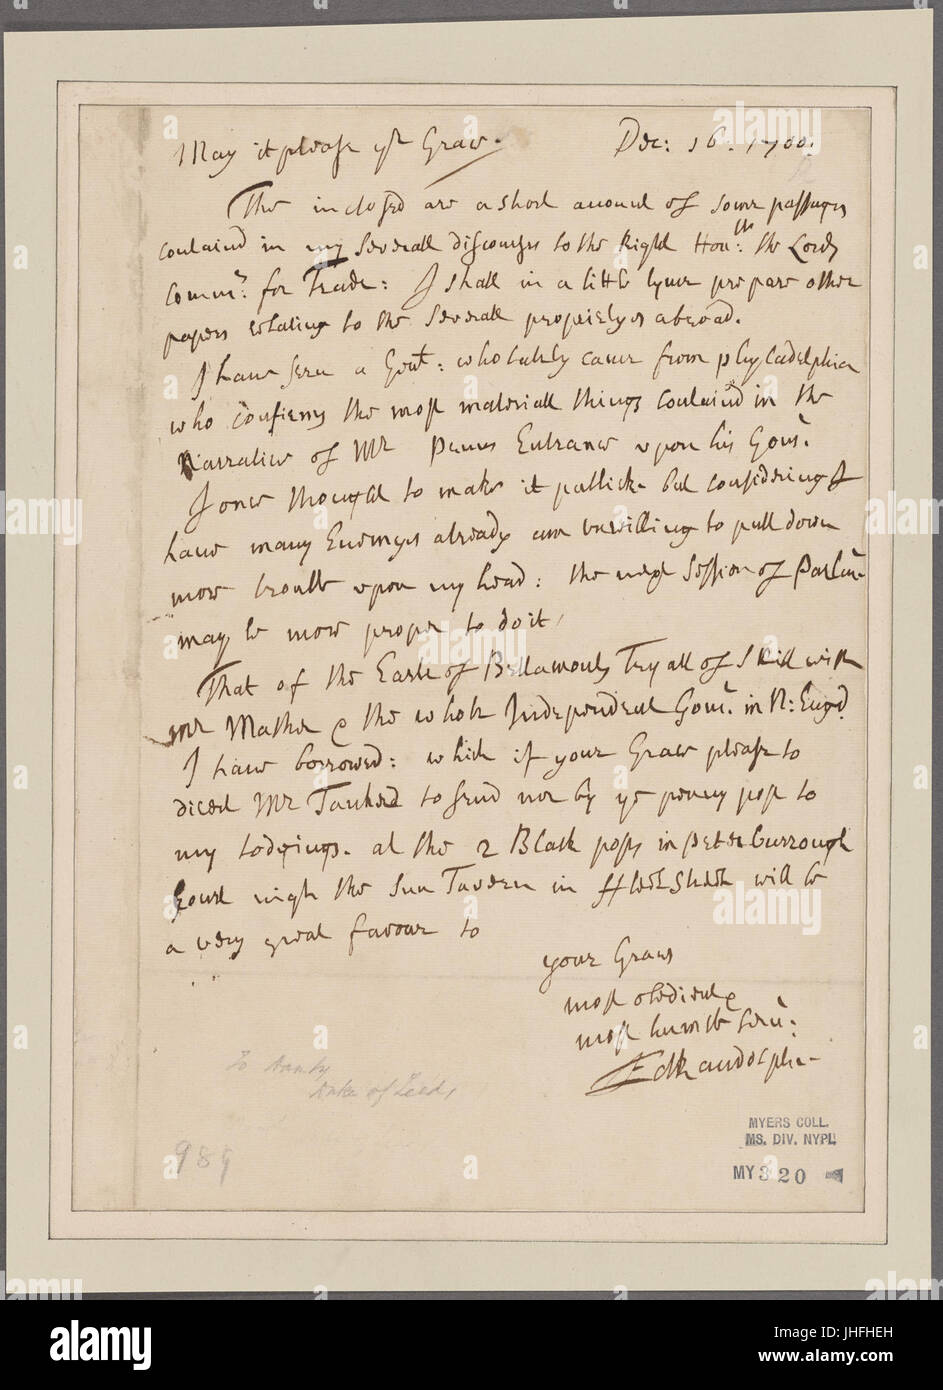 May it please yr Grace. Dec: 16. 1700.
The inclosed are a short account of some passages
contained in my severall discourses to the Right Hon:th the Lords
Comm:rs for Trade: I shall in a little tyme prepare other
papers relating to the severall proprietyes abroad.
I have seen a Gent: who lately came from phyladelphia
who confirms the most materiall things contained in the
Narrative of Mr Penns Entrance upon his Gour.
I once thought to make it publick but considering I
have many Enemyes already am unwilling to pull down
more trouble upon my head: the next Session of Parlmt
may be more proper to do it,
That of the Earle of Bellamonts Tryall of Skill with
mr Mather & the whole Independent Gour. in N: Engd.
I have borrowed: which if your Grace please to
direct Mr to send me by ye penny post to
my Lodgings. at the 2 Black posts in peterburrough
Court nigh the Sun Tavern in ffleetStreet will be
a very great favour to
your Graces
most obedient &
most humble Servt:
Ed Randolph
To Danby
Duke of Leeds
989
MYERS COLL.
MS. DIV. NYPL
MY 3 20
alamy
a
alamy stock photo
JHFHEH